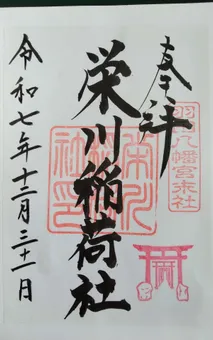 奉拝
羽田八幡宮末社
栄川稲荷社
令和七年十二月三十一日